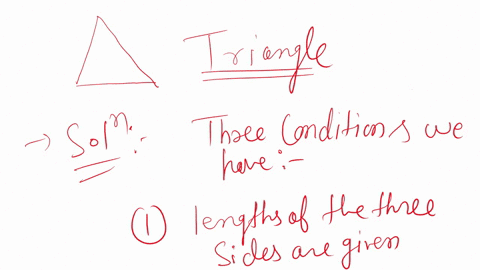 Triangle
→ Solⁿ:- Three Conditions we
have:-
① lengths of the three
sides are given